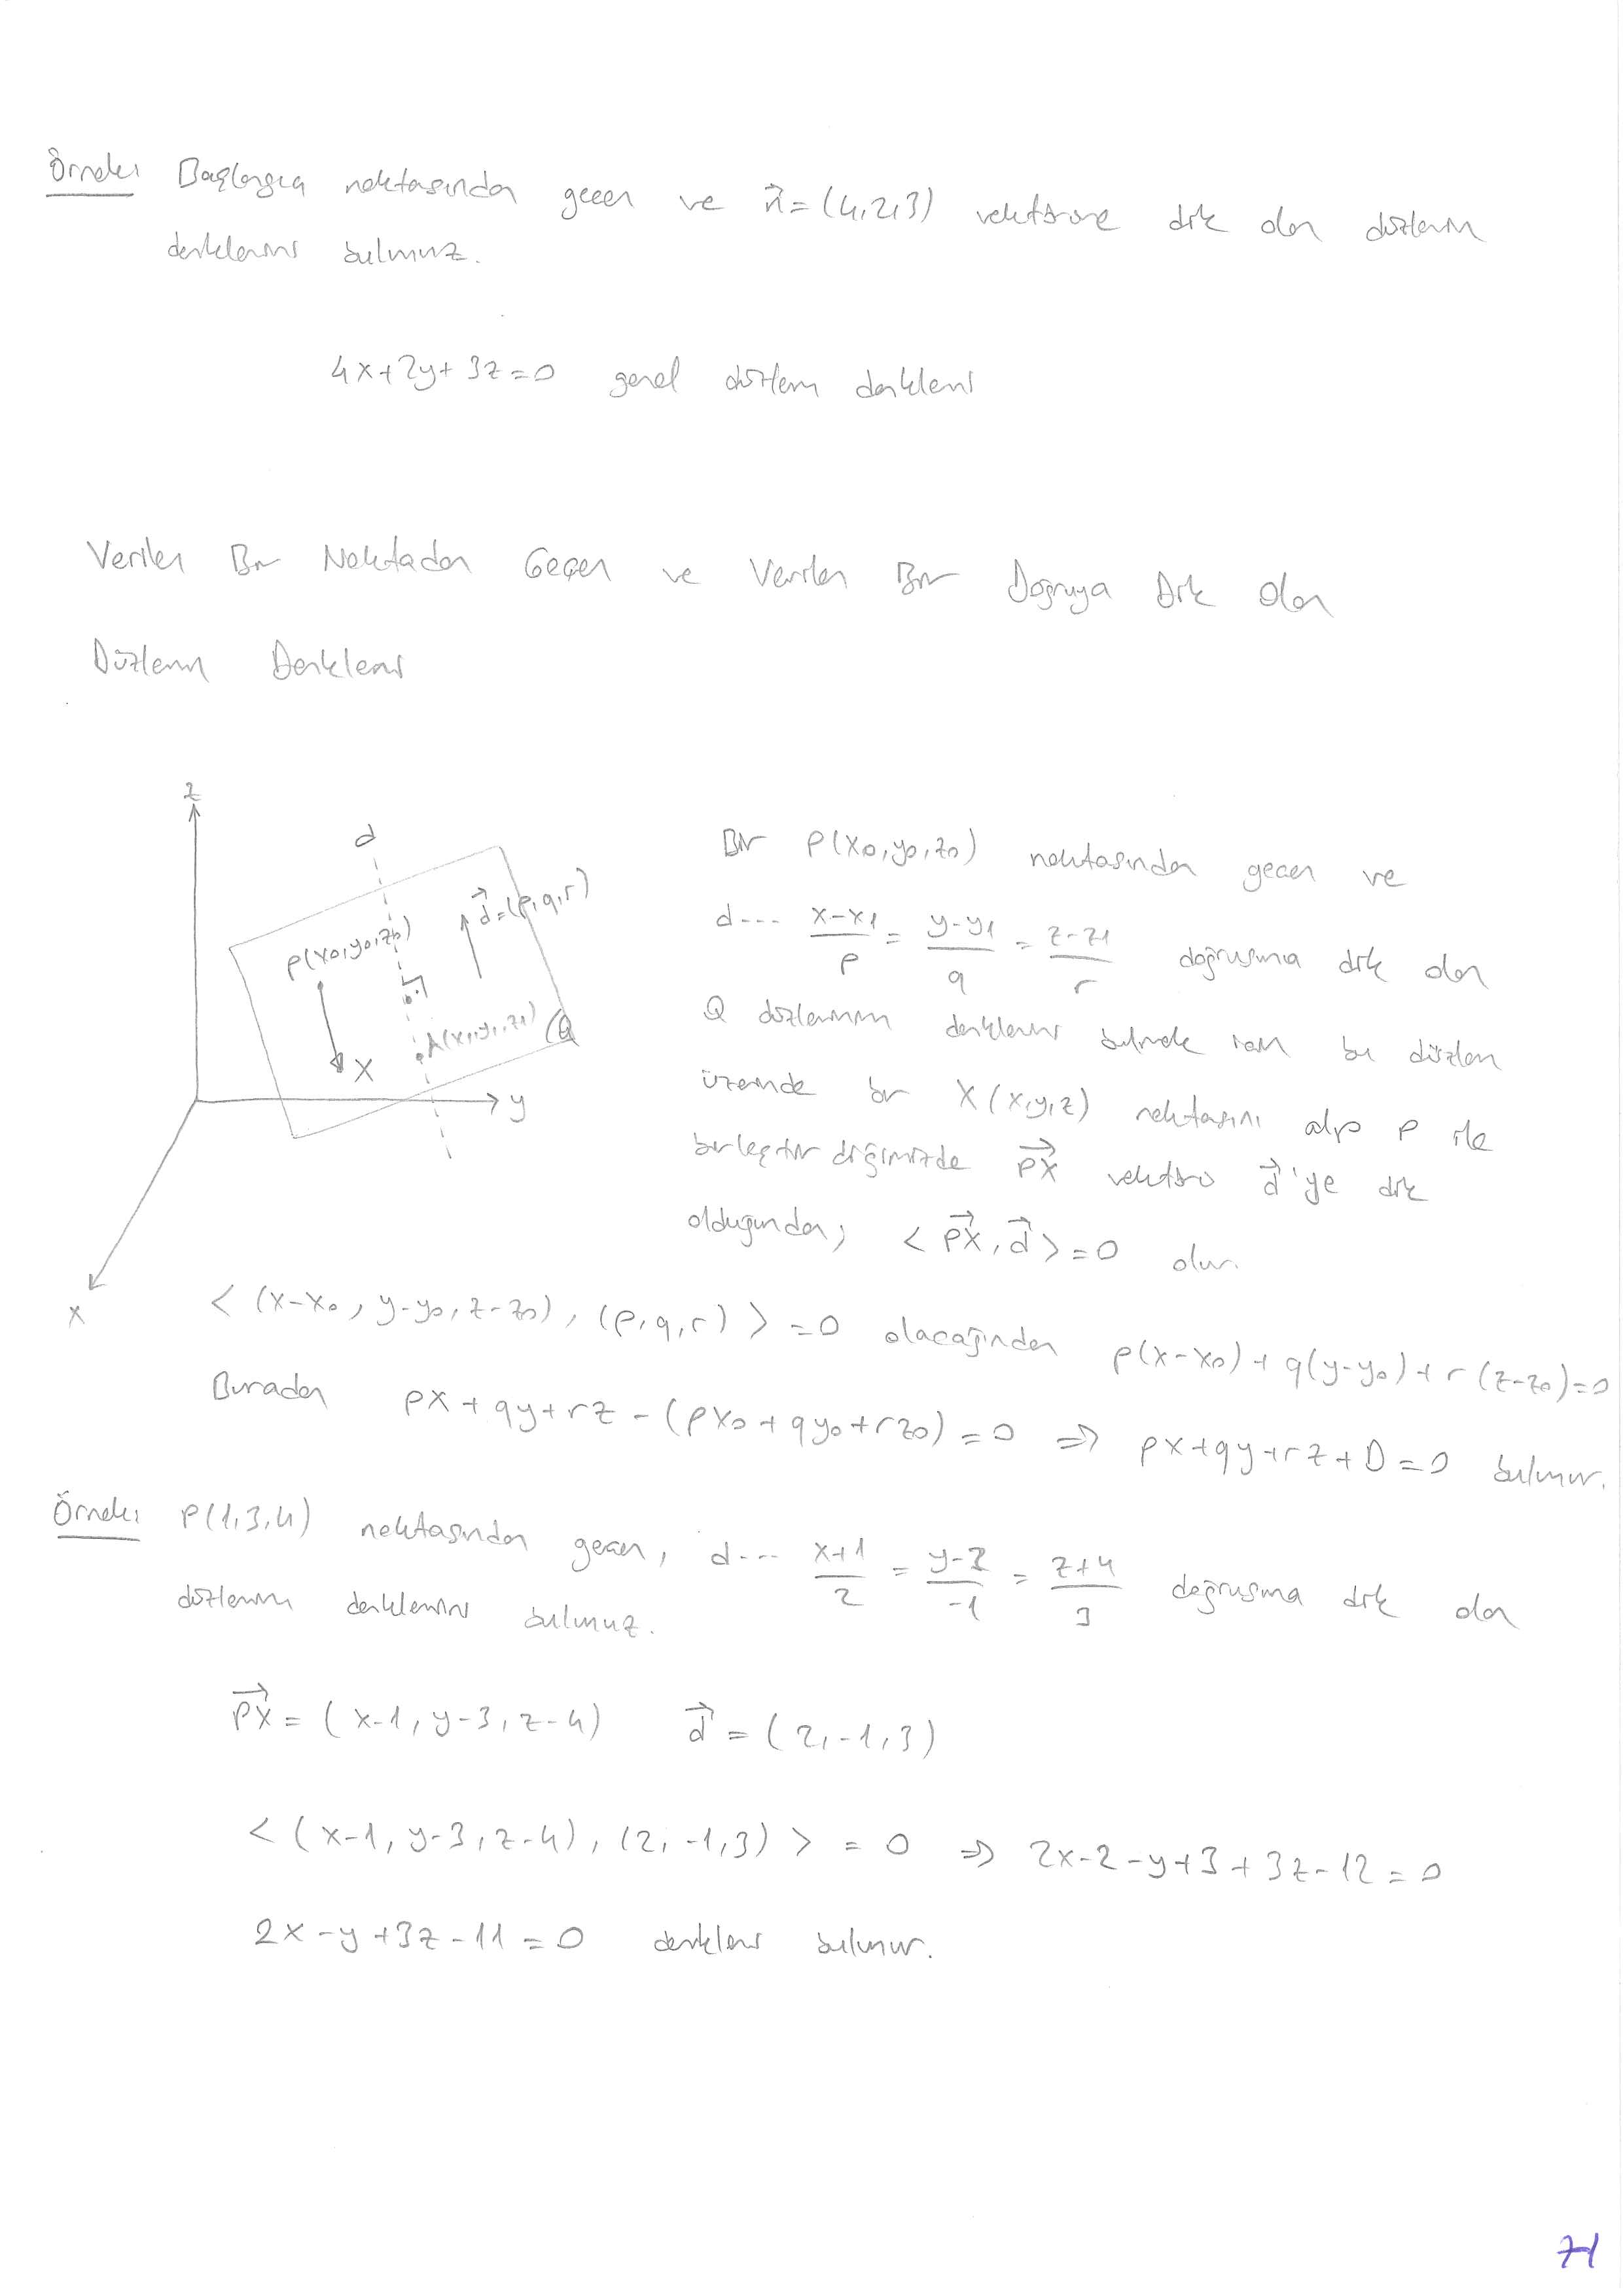 Örnek: Başlangıç noktasından geçen ve n⃗=(4,2,3) vektörüne dik olan düzlemin
denklemini bulunuz.
4x+2y+3z=0 genel düzlem denklemi
Verilen Bir Noktadan Geçen ve Verilen Bir Doğruya Dik Olan
Düzlemin Denklemi
z
d
d⃗=(p,q,r)
P(x0,y0,z0)
A(x1,y1,z1)
Q
X
y
x
Bir P(x0,y0,z0) noktasından geçen ve
d--- (x-x1)/p = (y-y1)/q = (z-z1)/r doğrusuna dik olan
Q düzleminin denklemini bulmak için bu düzlem
üzerinde bir X(x,y,z) noktasını alıp P ile
birleştirdiğimizde PX⃗ vektörü d⃗'ye dik
olduğundan; <PX⃗,d⃗>=0 olur.
<(x-x0, y-y0, z-z0), (p,q,r)>=0 olacağından p(x-x0)+q(y-y0)+r(z-z0)=0
Buradan px+qy+rz-(px0+qy0+rz0)=0 ⇒ px+qy+rz+D=0 bulunur.
Örnek: P(1,3,4) noktasından geçen, d--- (x+1)/2 = (y-2)/-1 = (z+4)/3 doğrusuna dik olan
düzlemin denklemini bulunuz.
PX⃗=(x-1, y-3, z-4) d⃗=(2,-1,3)
<(x-1, y-3, z-4), (2,-1,3)> = 0 ⇒ 2x-2-y+3+3z-12=0
2x-y+3z-11=0 denklemi bulunur.
71